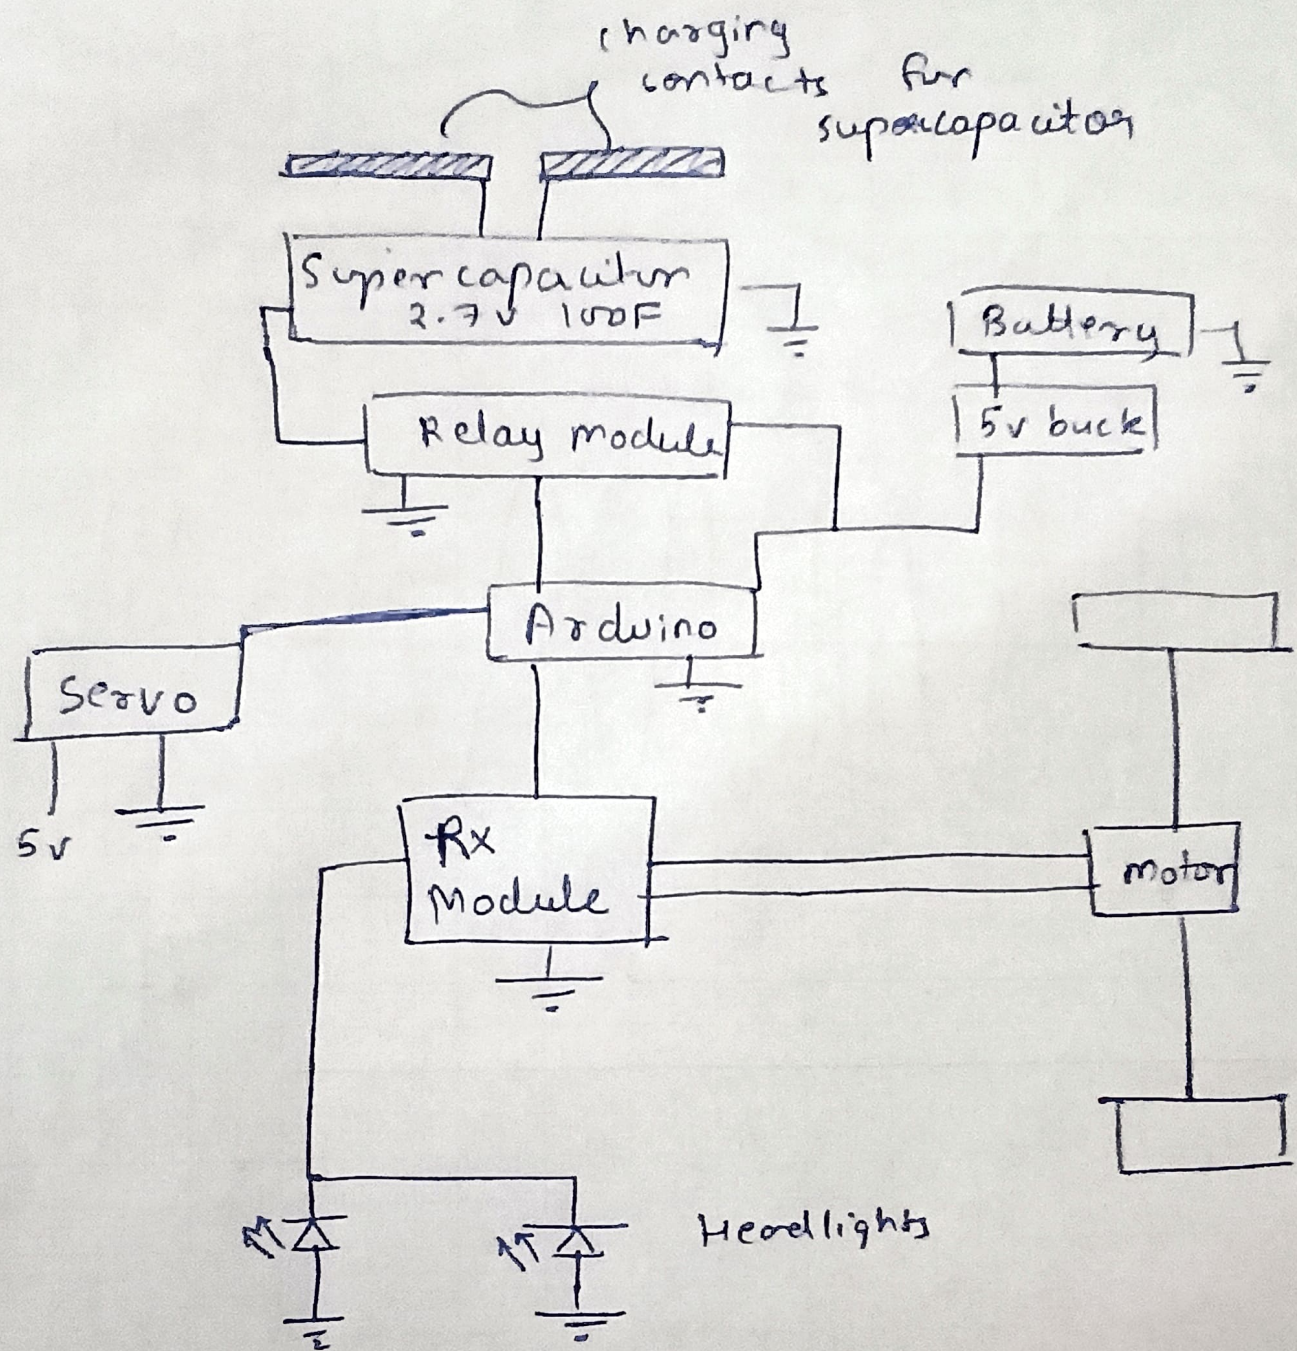 charging
contacts for
supercapacitor
Supercapacitor
2.7v 100F
Battery
5v buck
Relay module
Arduino
Servo
5v
Rx
Module
Motor
Headlights